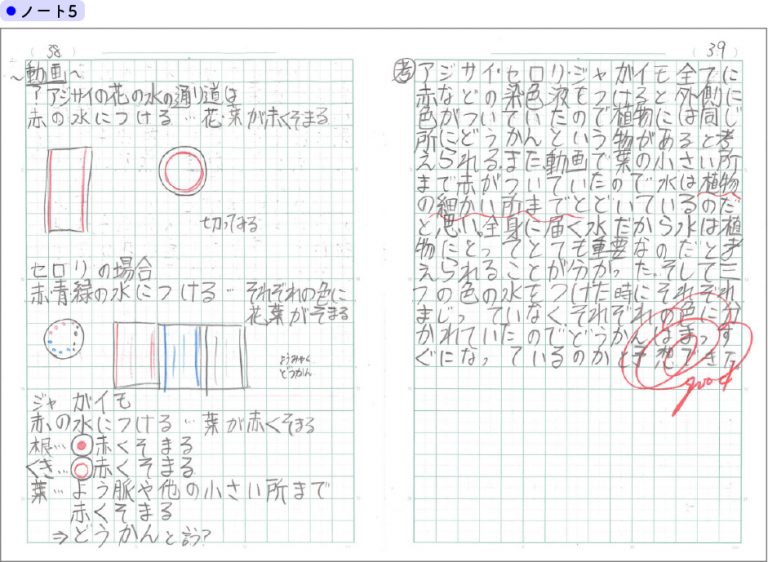 ●ノート5
(38)
~動画~
? アジサイの花の水の通り道は
赤の水につける…花・葉が赤くそまる
切ってみる
セロリの場合
赤・青緑の水につける…それぞれの色に
花、葉がそまる
どうかん
ジャガイモ
赤の水につける…葉が赤くそまる
根…赤くそまる
くき…赤くそまる
葉…よう脈や他の小さい所まで
赤くそまる
⇒どうかんと言う?
(39)
考 アジサイ・セロリ・ジャガイモ全てに
赤などの染色液をつけると外側に
色がついていたので植物には同じ
所にどうかんという物があると考
えられる。また、動画で葉の小さい所
まで赤がついていたので水は植物
の細かい所までとどいているのだ
と思い、全身に届く水だから水は植
物にとってとても重要なのだと考
えられることが分かった。そして三
つの色の水をつけた時にそれぞれ
まじっていなくそれぞれの色に分
かれていたのでどうかんはまっす
ぐになっているのかと予想できた。
good